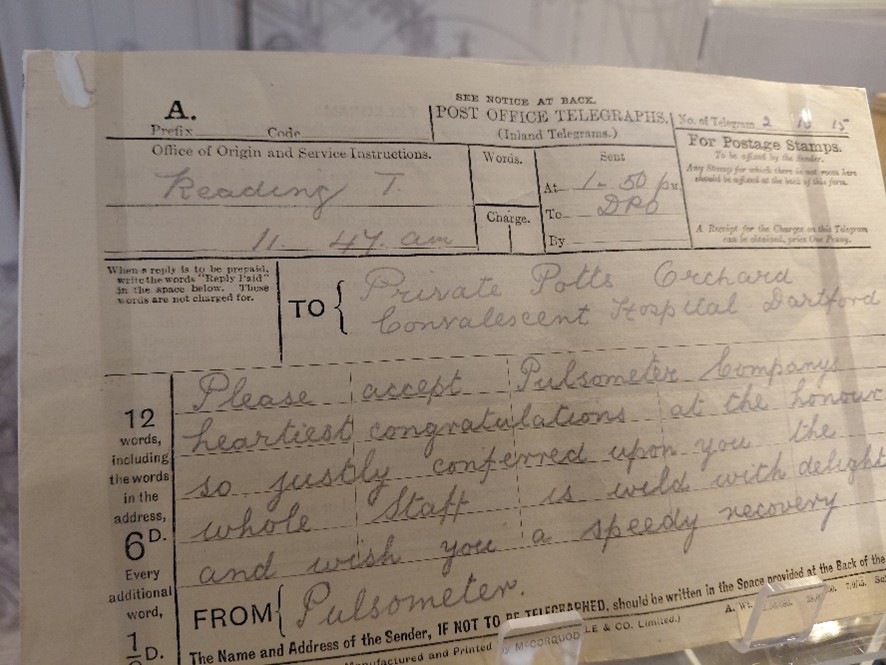 A.
Prefix Code
SEE NOTICE AT BACK.
POST OFFICE TELEGRAPHS.
(Inland Telegrams.)
No. of Telegram 2 10 15
Office of Origin and Service Instructions.
Reading T.
11. 47. am
Words.
Charge.
Sent
At 1-50 pm
To DRO
By
For Postage Stamps.
To be affixed by the Sender.
Any Stamp for which there is not room here
should be affixed at the back of this form.
A Receipt for the Charges on this Telegram
can be obtained, price One Penny.
When a reply is to be prepaid,
write the words "Reply Paid"
in the space below. These
words are not charged for.
TO
Private Potts Orchard
Convalescent Hospital Dartford
12
words,
including
the words
in the
address,
6D.
Every
additional
word,
1
D.
Please accept Pulsometer Companys
heartiest congratulations at the honour
so justly conferred upon you the
whole Staff is wild with delight
and wish you a speedy recovery
FROM
Pulsometer.
The Name and Address of the Sender, IF NOT TO BE TELEGRAPHED, should be written in the Space provided at the Back of the
Manufactured and Printed by McCORQUODALE & CO. Limited.)